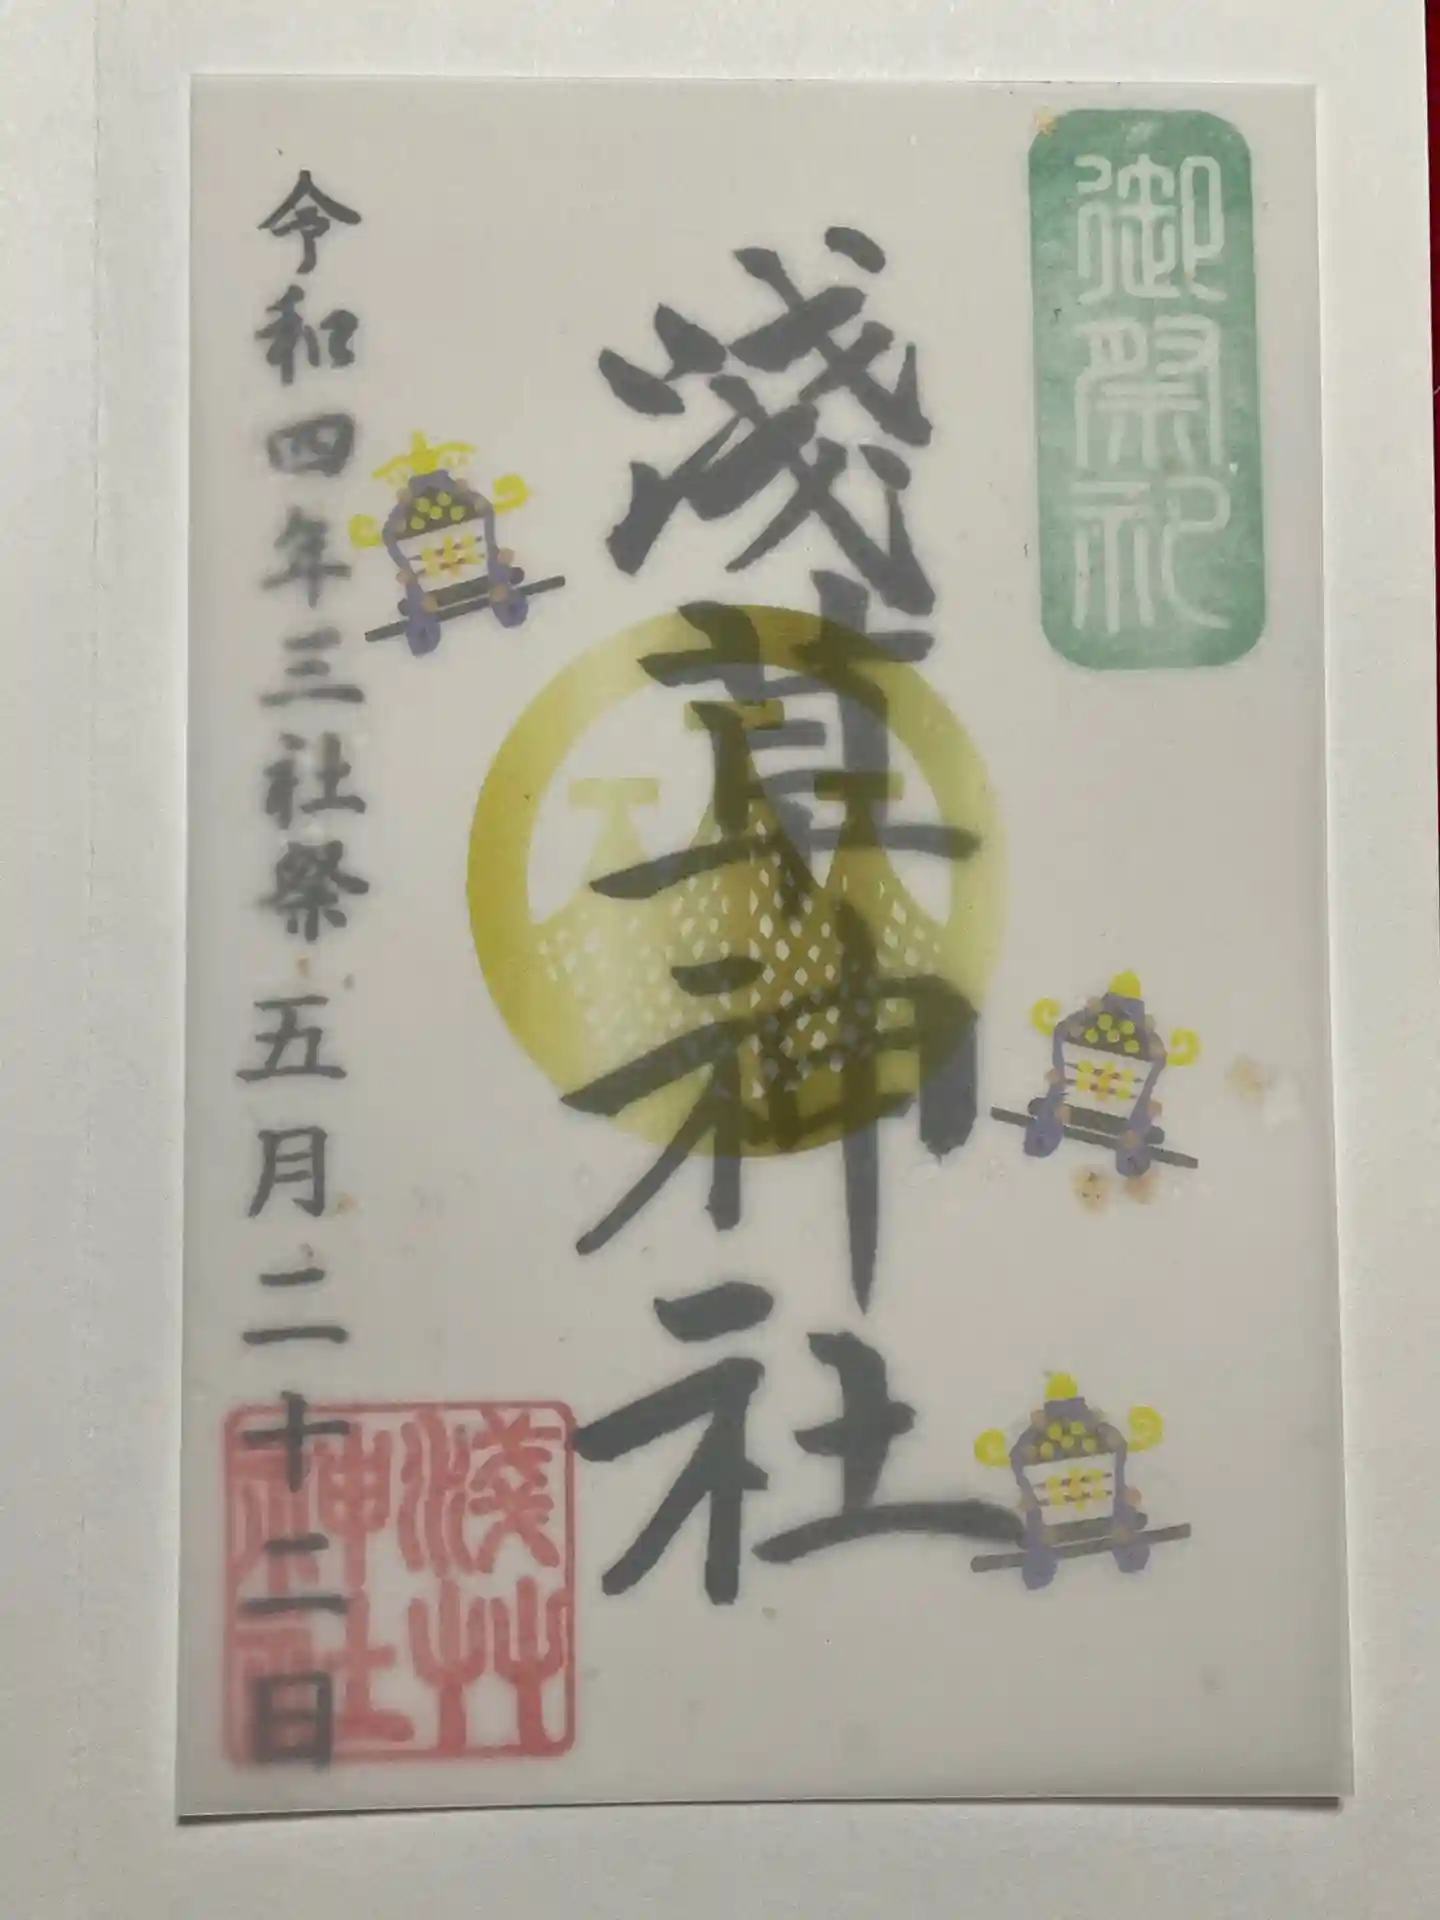 御祭礼
淺草神社
令和四年三社祭五月二十二日
淺草
神社